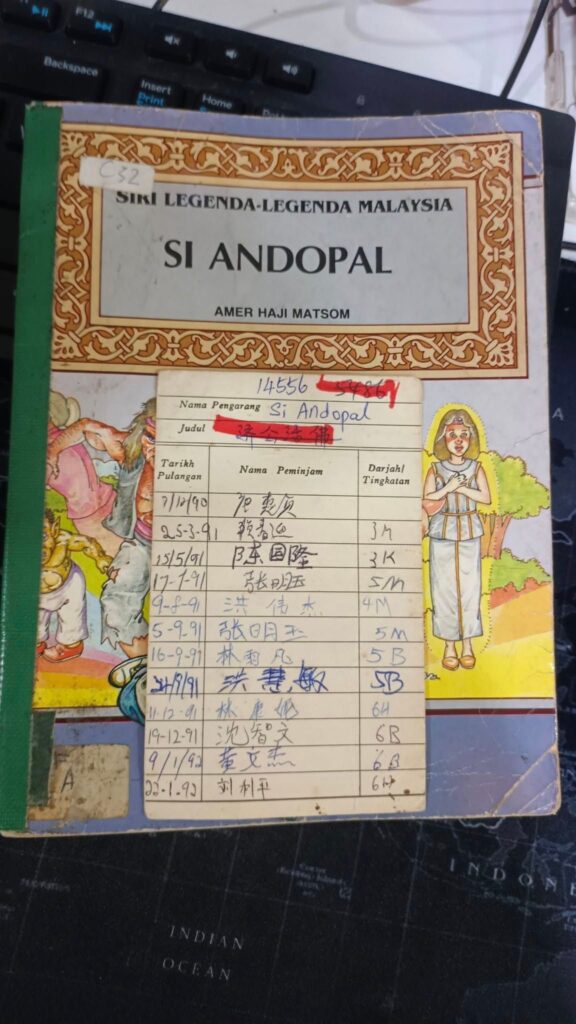 F12
Backspace
Insert
Print
Home
C32
SIRI LEGENDA-LEGENDA MALAYSIA
SI ANDOPAL
AMER HAJI MATSOM
14556 54867
Nama Pengarang Si Andopal
Judul 济公活佛
Tarikh Pulangan Nama Peminjam Darjah/Tingkatan
7/12/90
25-3-91 3M
15/5/91 陈国隆 3K
17-7-91 张明玉 5M
9-8-91 洪伟杰 4M
5-9-91 张明玉 5M
16-9-91 林 凡 5B
24/9/91 洪慧敏 5B
11-12-91 林 6H
19-12-91 沈智文 6B
9/1/92 黄文杰 6B
22-1-92 刘利平 6H
A
INDIAN
OCEAN
INDONE